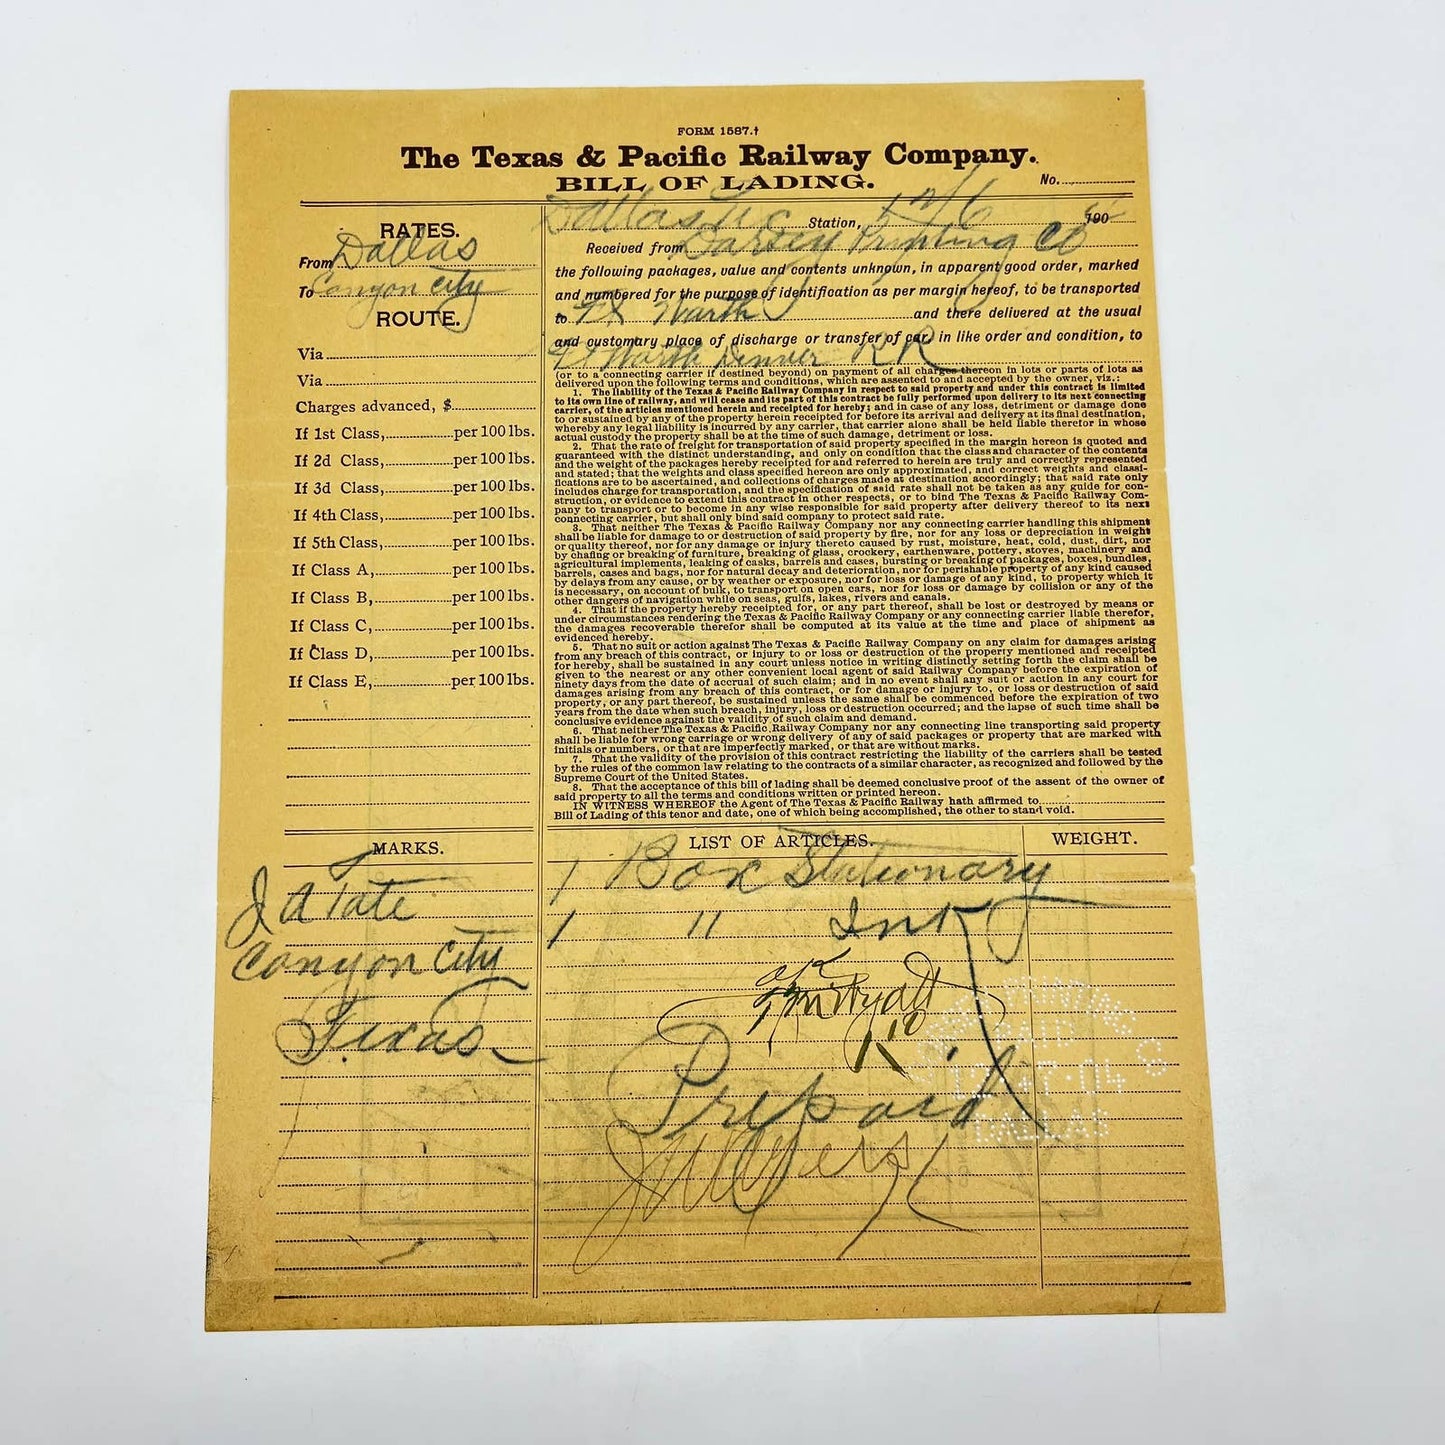 FORM 1587.†
The Texas & Pacific Railway Company.
BILL OF LADING.
No.
Dallas Tex Station, 12/6 190
RATES.
From Dallas
To Canyon City
ROUTE.
Via
Via
Charges advanced, $
If 1st Class, per 100 lbs.
If 2d Class, per 100 lbs.
If 3d Class, per 100 lbs.
If 4th Class, per 100 lbs.
If 5th Class, per 100 lbs.
If Class A, per 100 lbs.
If Class B, per 100 lbs.
If Class C, per 100 lbs.
If Class D, per 100 lbs.
If Class E, per 100 lbs.
Received from Dorsey Printing Co
the following packages, value and contents unknown, in apparent good order, marked
and numbered for the purpose of identification as per margin hereof, to be transported
to Ft Worth and there delivered at the usual
and customary place of discharge or transfer of car, in like order and condition, to
Ft Worth Denver RR
(or to a connecting carrier if destined beyond) on payment of all charges thereon in lots or parts of lots as
delivered upon the following terms and conditions, which are assented to and accepted by the owner, viz.:
1. The liability of the Texas & Pacific Railway Company in respect to said property and under this contract is limited
to its own line of railway, and will cease and its part of this contract be fully performed upon delivery to its next connecting
carrier, of the articles mentioned herein and receipted for hereby; and in case of any loss, detriment or damage done
to or sustained by any of the property herein receipted for before its arrival and delivery at its final destination,
whereby any legal liability is incurred by any carrier, that carrier alone shall be held liable therefor in whose
actual custody the property shall be at the time of such damage, detriment or loss.
2. That the rate of freight for transportation of said property specified in the margin hereon is quoted and
guaranteed with the distinct understanding, and only on condition that the class and character of the contents
and the weight of the packages hereby receipted for and referred to herein are truly and correctly represented
and stated; that the weights and class specified hereon are only approximated, and correct weights and classi-
fications are to be ascertained, and collections of charges made at destination accordingly; that said rate only
includes charge for transportation, and the specification of said rate shall not be taken as any guide for con-
struction, or evidence to extend this contract in other respects, or to bind The Texas & Pacific Railway Com-
pany to transport or to become in any wise responsible for said property after delivery thereof to its next
connecting carrier, but shall only bind said company to protect said rate.
3. That neither The Texas & Pacific Railway Company nor any connecting carrier handling this shipment
shall be liable for damage to or destruction of said property by fire, nor for any loss or depreciation in weight
or quality thereof, nor for any damage or injury thereto caused by rust, moisture, heat, cold, dust, dirt, nor
by chafing or breaking of furniture, breaking of glass, crockery, earthenware, pottery, stoves, machinery and
agricultural implements, leaking of casks, barrels and cases, bursting or breaking of packages, boxes, bundles,
barrels, cases and bags, nor for natural decay and deterioration, nor for perishable property of any kind caused
by delays from any cause, or by weather or exposure, nor for loss or damage of any kind, to property which it
is necessary, on account of bulk, to transport on open cars, nor for loss or damage by collision or any of the
other dangers of navigation while on seas, gulfs, lakes, rivers and canals.
4. That if the property hereby receipted for, or any part thereof, shall be lost or destroyed by means or
under circumstances rendering the Texas & Pacific Railway Company or any connecting carrier liable therefor,
the damages recoverable therefor shall be computed at its value at the time and place of shipment as
evidenced hereby.
5. That no suit or action against The Texas & Pacific Railway Company on any claim for damages arising
from any breach of this contract, or injury to or loss or destruction of the property mentioned and receipted
for hereby, shall be sustained in any court unless notice in writing distinctly setting forth the claim shall be
given to the nearest or any other convenient local agent of said Railway Company before the expiration of
ninety days from the date of accrual of such claim; and in no event shall any suit or action in any court for
damages arising from any breach of this contract, or for damage or injury to, or loss or destruction of said
property, or any part thereof, be sustained unless the same shall be commenced before the expiration of two
years from the date when such breach, injury, loss or destruction occurred; and the lapse of such time shall be
conclusive evidence against the validity of such claim and demand.
6. That neither The Texas & Pacific Railway Company nor any connecting line transporting said property
shall be liable for wrong carriage or wrong delivery of any of said packages or property that are marked with
initials or numbers, or that are imperfectly marked, or that are without marks.
7. That the validity of the provision of this contract restricting the liability of the carriers shall be tested
by the rules of the common law relating to the contracts of a similar character, as recognized and followed by the
Supreme Court of the United States.
8. That the acceptance of this bill of lading shall be deemed conclusive proof of the assent of the owner of
said property to all the terms and conditions written or printed hereon.
IN WITNESS WHEREOF the Agent of The Texas & Pacific Railway hath affirmed to
Bill of Lading of this tenor and date, one of which being accomplished, the other to stand void.
MARKS. LIST OF ARTICLES. WEIGHT.
1 Box Stationary
J A Tate
1 " Ink
Canyon City
Texas
OK
PRINTING
PAID
12·17·04
DALLAS
Prepaid